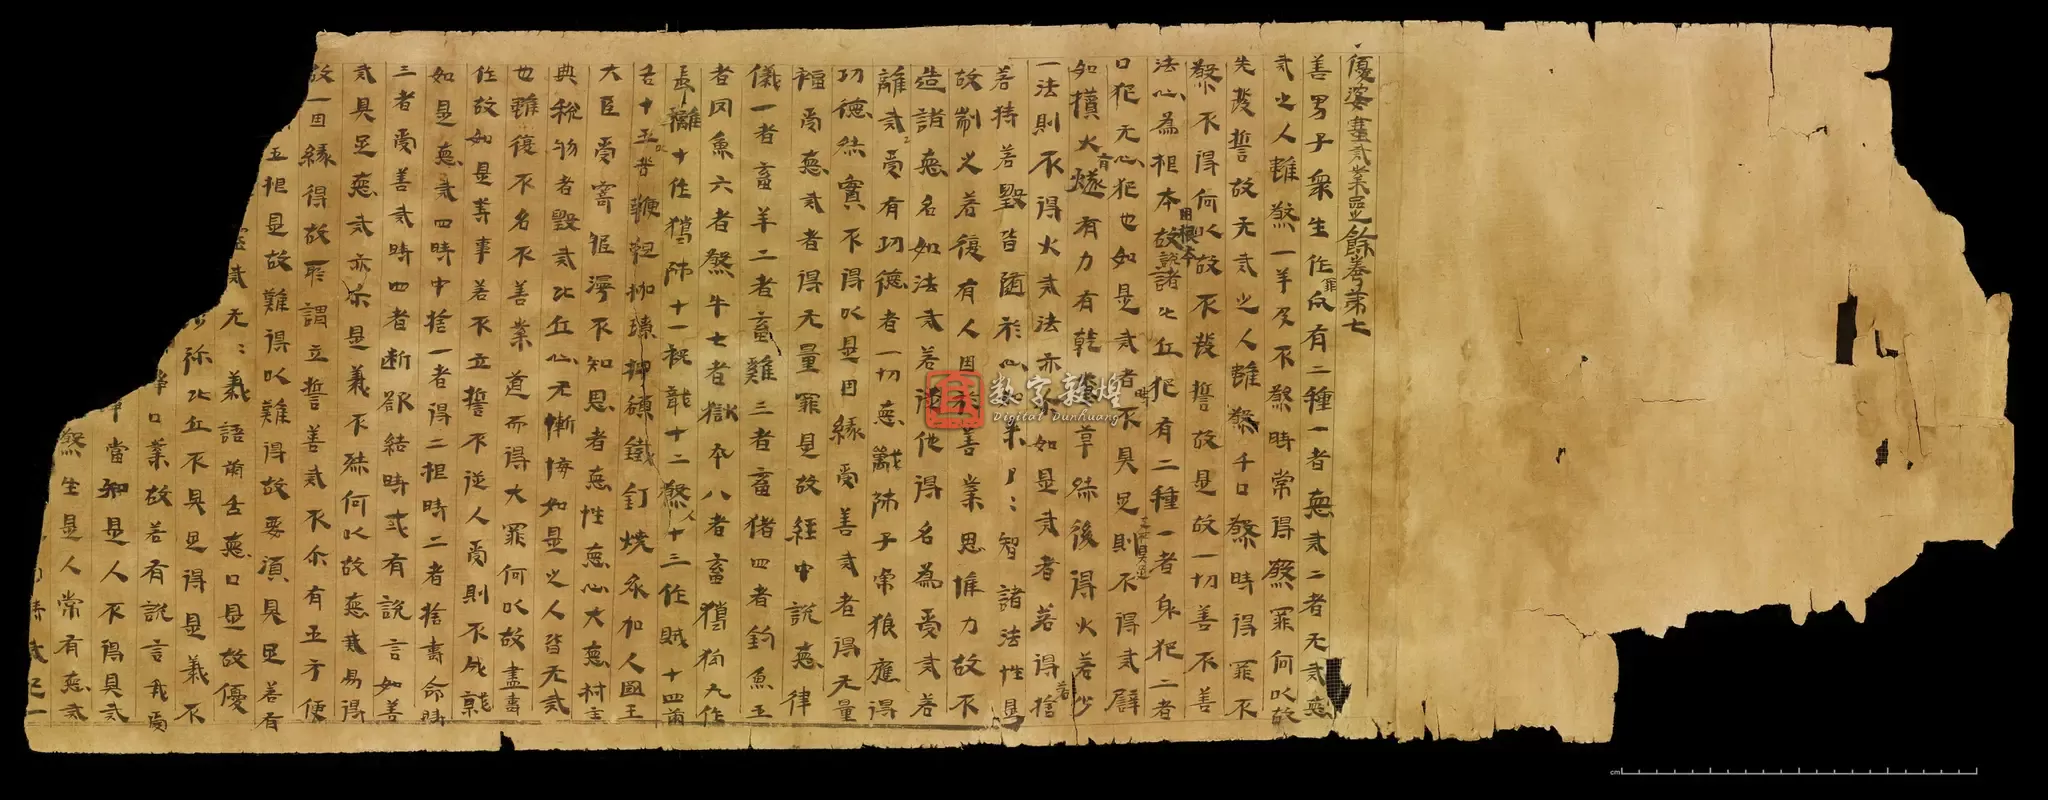 優婆塞戒業品之餘卷第七
善男子衆生作罪凡有二種一者惡戒二者无戒惡
戒之人雖煞一羊及不煞時常得煞罪何以故
先發誓故无戒之人雖煞千口煞時得罪不
煞不得何以故不發誓故是故一切善不善
法心為根本因根本故說諸比丘犯有二種一者身犯二者
口犯无心犯也如是戒者時不具足則不得戒辟
如攢火有燧有力有乾草然後得火若少
一法則不得火戒法亦如是戒者若得若捨
若持若毀皆随於心如來了了智諸法性是
故制之若復有人因於善業思惟力故不
造諸惡名如法戒若從他得名為受戒若
離戒受有功德者一切惡戒師子帍狼應得
功德然實不得以是因緣受善戒者得无量
福受惡戒者得无量罪是故經中說惡律
儀一者畜羊二者畜雞三者畜猪四者釣魚五
者囚魚六者煞牛七者獄卒八者畜獵狗九作
長離十作獵師十一祝龍十二煞人十三作賊十四兩
舌十五以苦鞭
大臣受寄不知恩者惡性惡心大惡村主
典稅物者毀戒比丘心无慚悔如是之人皆无戒
也雖復不名不善業道而得大罪何以故盡壽
作故如是等事若不立誓不從人受則不成就
如是惡戒四時中捨一者得二根時二者捨壽命時
三者受善戒時四者断欲結時或有說言如善
戒具足惡戒亦尒是義不然何以故惡戒易得
故一因緣得故所謂立誓善戒不尒有五方便
五根是故難得以難得故要須具足若有
戒无无義語兩舌惡口是故優
弥比丘不具足得是義不
口業故若有說言我受
當知是人不得具戒
煞生是人常有惡戒